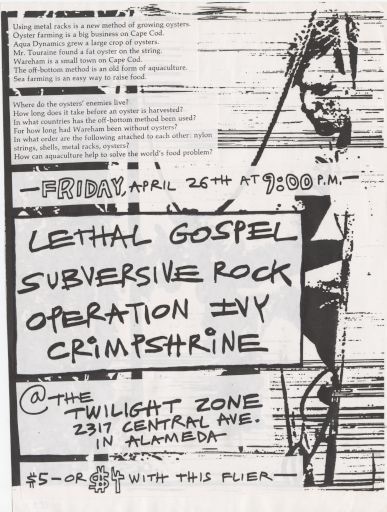 Using metal racks is a new method of growing oysters.
Oyster farming is a big business on Cape Cod.
Aqua Dynamics grew a large crop of oysters.
Mr. Touraine found a fat oyster on the string.
Wareham is a small town on Cape Cod.
The off-bottom method is an old form of aquaculture.
Sea farming is an easy way to raise food.
Where do the oysters' enemies live?
How long does it take before an oyster is harvested?
In what countries has the off-bottom method been used?
For how long had Wareham been without oysters?
In what order are the following attached to each other: nylon
strings, shells, metal racks, oysters?
How can aquaculture help to solve the world's food problem?
—FRIDAY, APRIL 26TH AT 9:00 P.M.—
LETHAL GOSPEL
SUBVERSIVE ROCK
OPERATION IVY
CRIMPSHRINE
@ THE
TWILIGHT ZONE
2317 CENTRAL AVE.
IN ALAMEDA
$5—OR $4 WITH THIS FLIER—